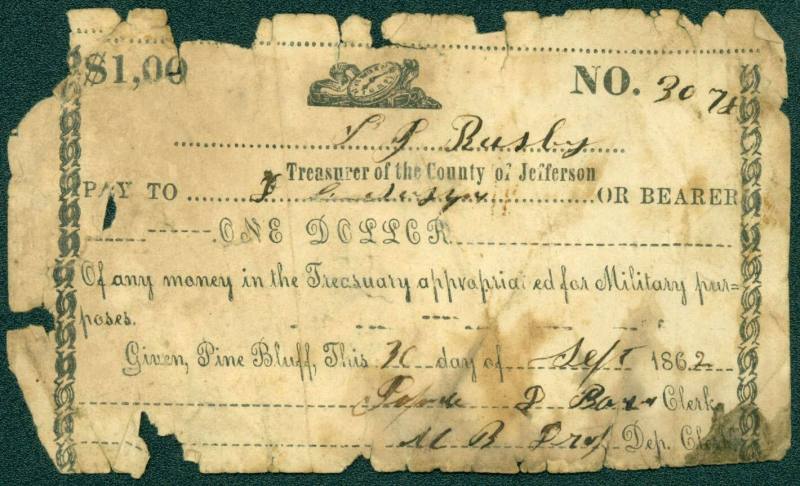 $1,00 NO. 3074
Rusby
Treasurer of the County of Jefferson
PAY TO OR BEARER
ONE DOLLAR
Of any money in the Treasury appropriated for Military pur=
poses.
Given, Pine Bluff, This day of Sept 1862
Clerk
M B Dep. Clerk